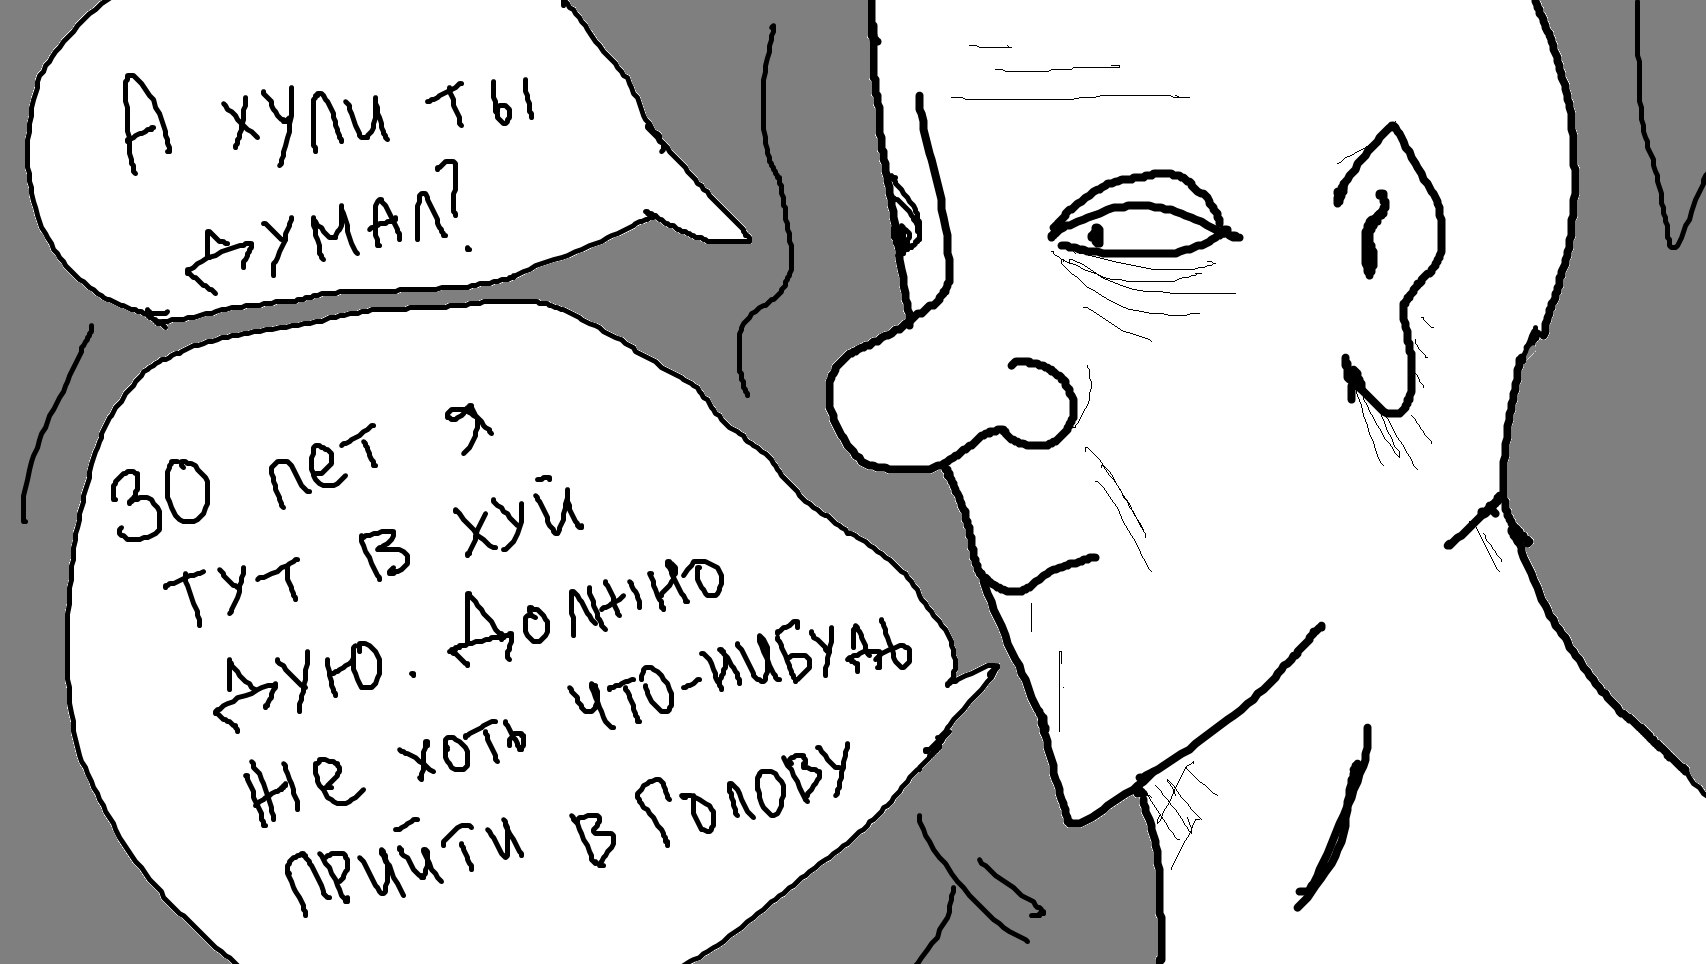 А хули ты
думал?
30 лет я
тут в хуй
дую. Должно
же хоть что-нибудь
прийти в голову